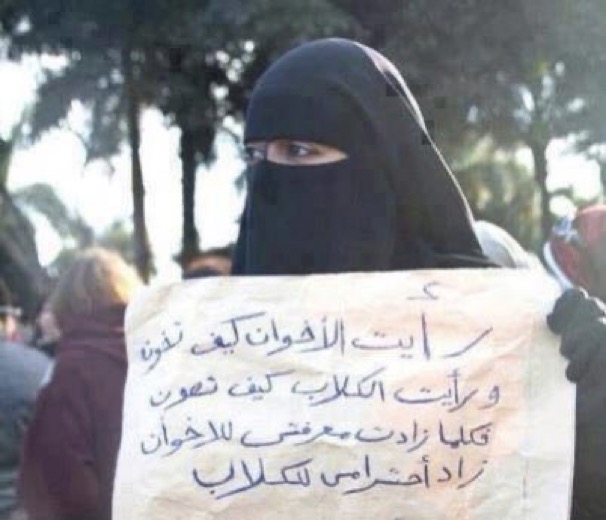 رأيت الأخوان كيف تخون
ورأيت الكلاب كيف تصون
فكلما زادت معرفتى للاخوان
زاد أحترامى للكلاب